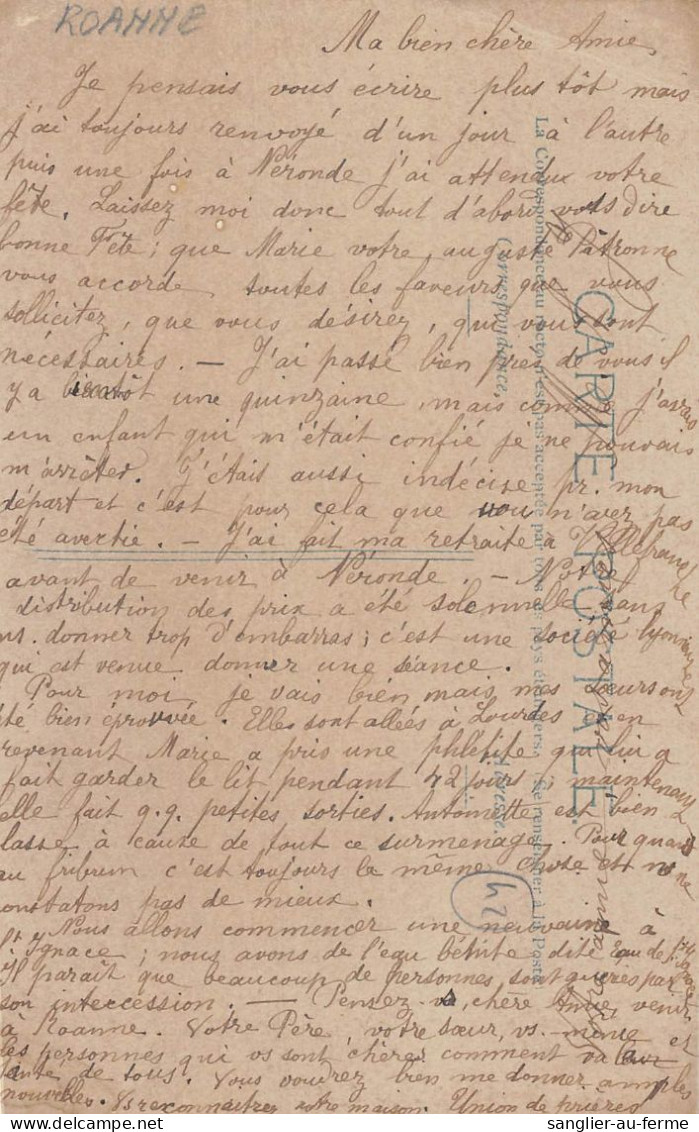 ROANNE
Ma bien chère Amie,
Je pensais vous écrire plus tôt mais
j'ai toujours renvoyé d'un jour à l'autre
puis une fois à Néronde j'ai attendu votre
fête. Laissez moi donc tout d'abord vous dire
bonne Fête ; que Marie votre auguste Patronne
vous accorde toutes les faveurs que vous
sollicitez, que vous désirez, qui vous sont
nécessaires. — J'ai passé bien près de vous il
y a bientôt une quinzaine, mais comme j'avais
un enfant qui m'était confié je ne pouvais
m'arrêter. J'étais aussi indécise pr. mon
départ et c'est pour cela que vous n'avez pas
été avertie. — J'ai fait ma retraite à Villefranche
avant de venir à Néronde. — Notre
distribution des prix a été solennelle sans
ns. donner trop d'embarras ; c'est une société lyonnaise
qui est venue donner une séance.
Pour moi je vais bien mais mes sœurs ont
été bien éprouvée. Elles sont allées à Lourdes en
revenant Marie a pris une phlébite qui lui a
fait garder le lit pendant 42 jours ; maintenant
elle fait q.q. petites sorties. Antoinette est bien
lasse à cause de tout ce surmenage. Pour quant
au fribrum c'est toujours la même chose et ns ne
constatons pas de mieux.
Nous allons commencer une neuvaine à
St Ignace ; nous avons de l'eau bénite dite Eau de St Ignace
Il paraît que beaucoup de personnes sont guéries par
son intercession. — Pensez vs, chère Amie, venir
à Roanne. Votre Père votre sœur, vs. même et
les personnes qui vs sont chères comment va leur
santé de tous. Vous voudrez bien me donner amples
nouvelles. Vs reconnaîtrez votre maison. Union de prières
CARTE POSTALE
La Correspondance au recto n'est pas acceptée par tous les pays étrangers. (Se renseigner à la Poste)
Correspondance,
Adresse,
42
© sanglier-au-ferme